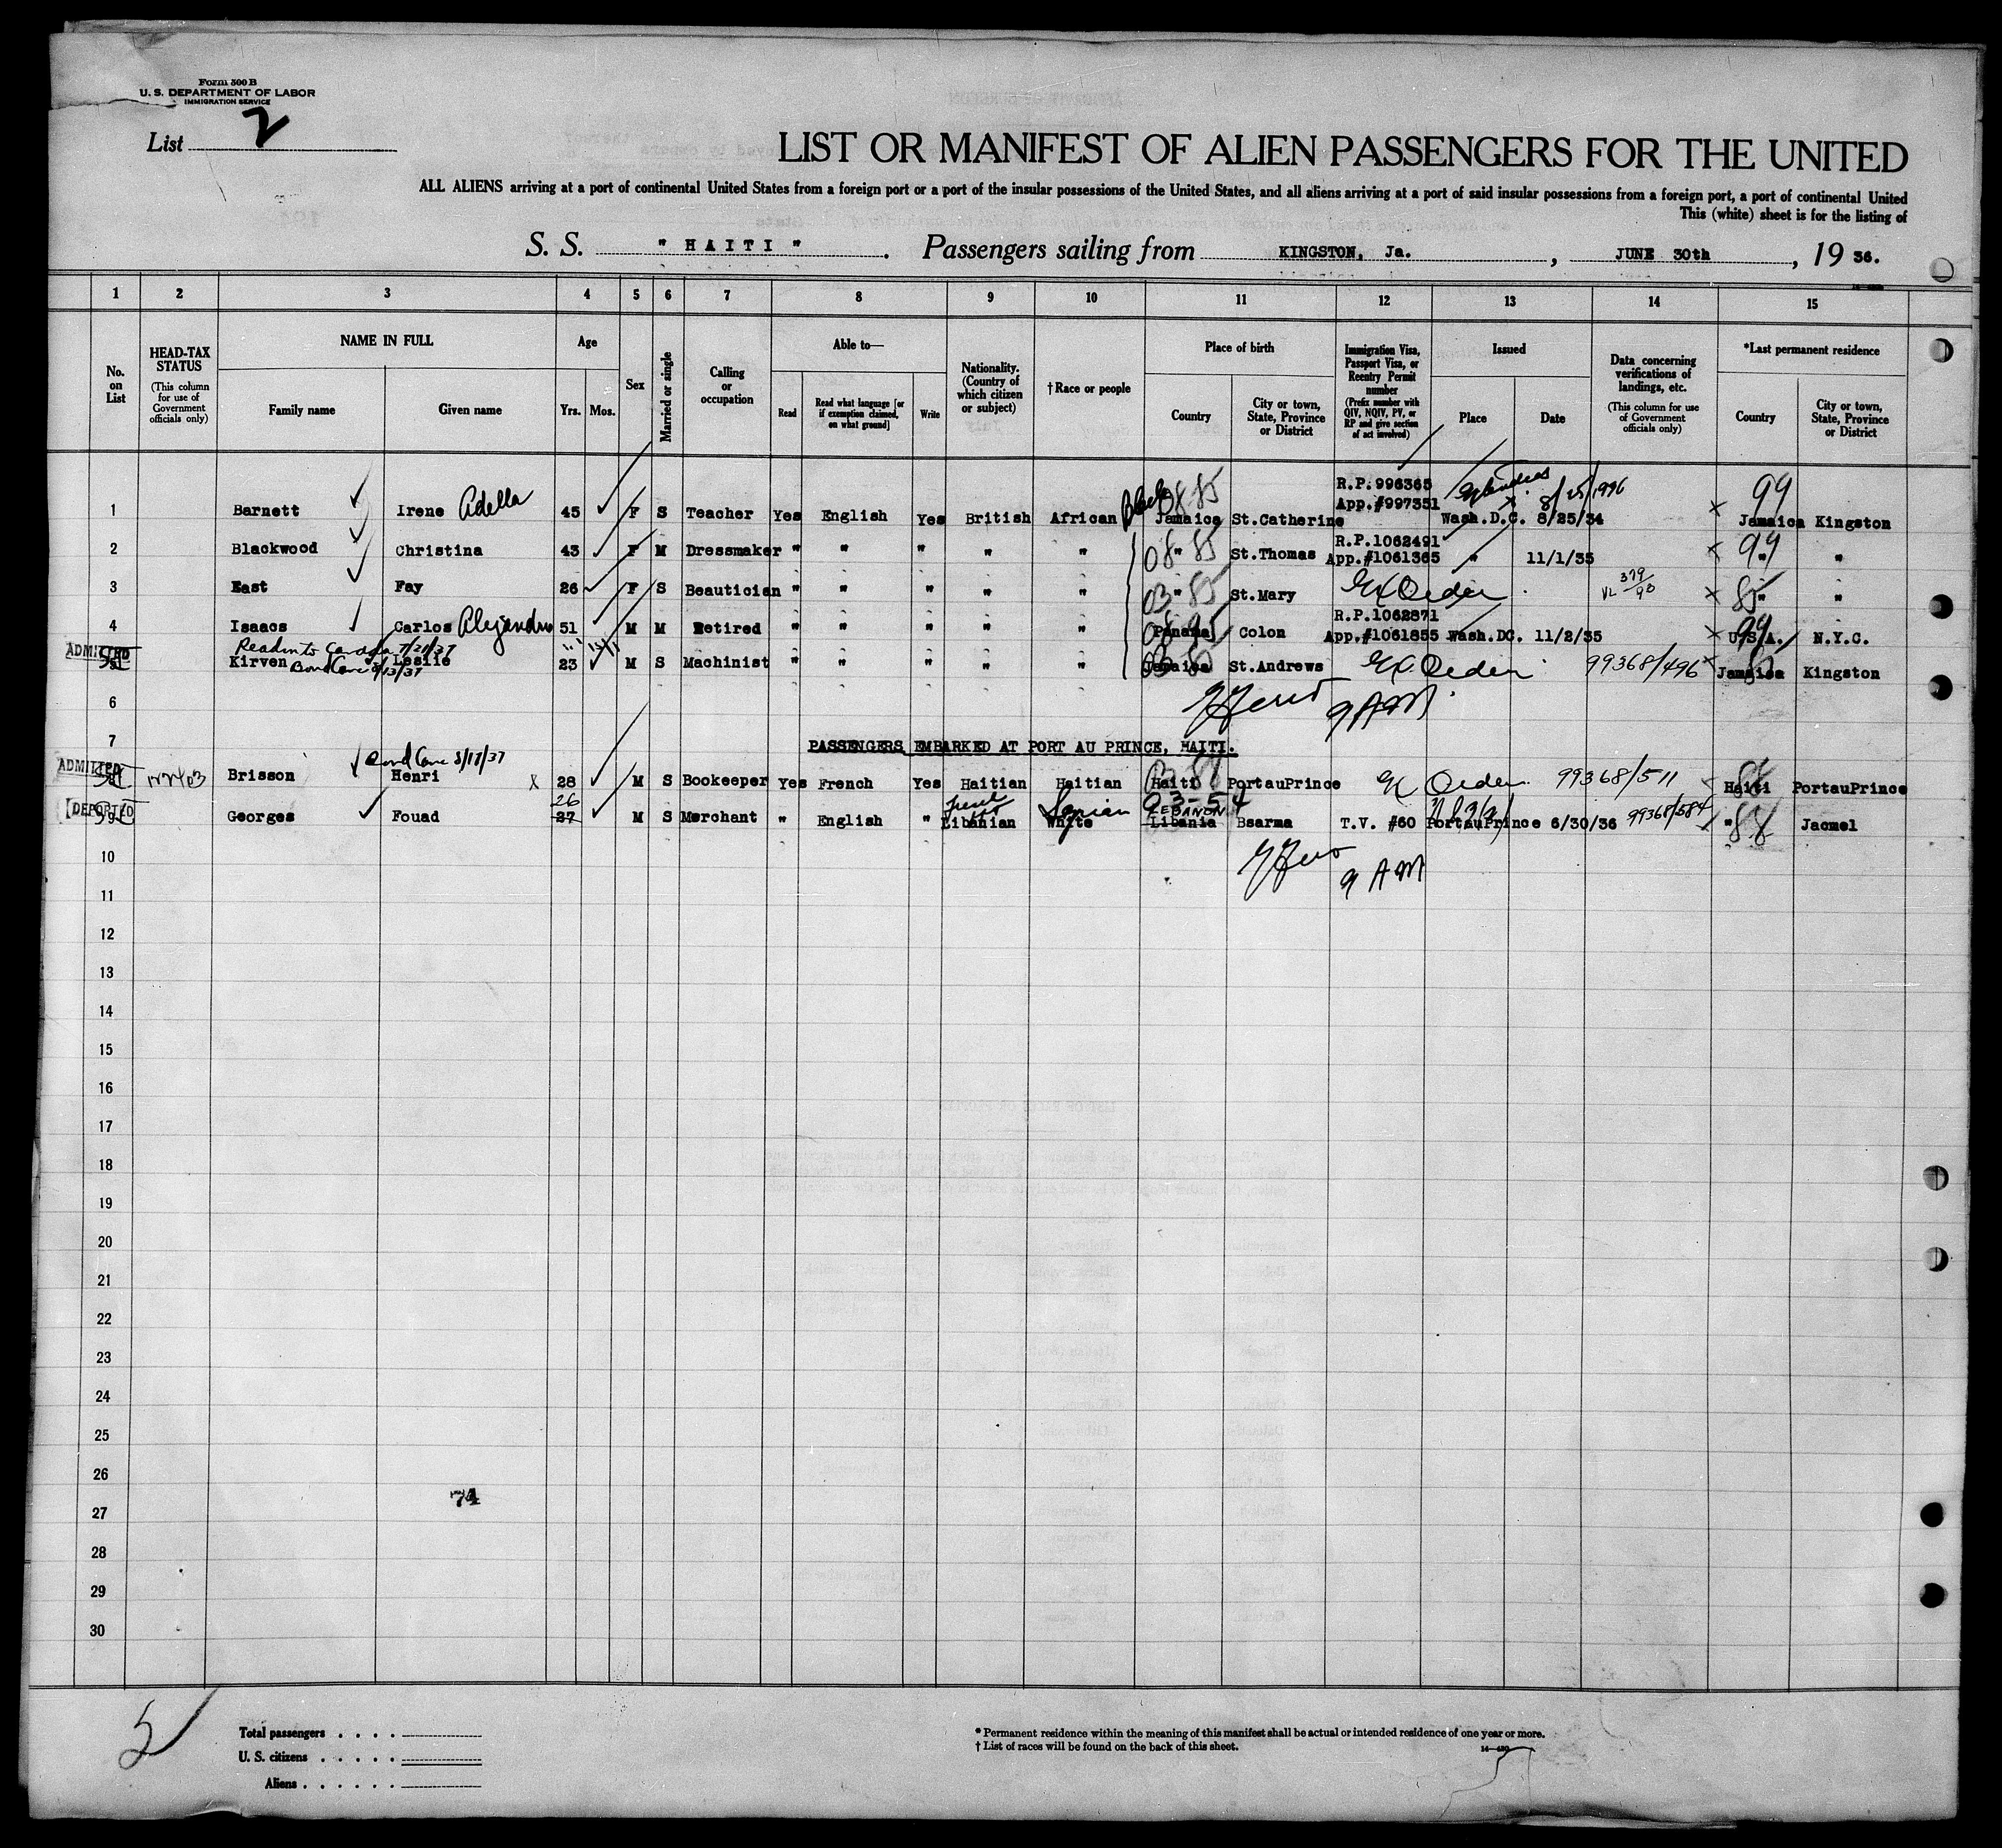 Form 500 B
U. S. DEPARTMENT OF LABOR
IMMIGRATION SERVICE
List 2
LIST OR MANIFEST OF ALIEN PASSENGERS FOR THE UNITED
ALL ALIENS arriving at a port of continental United States from a foreign port or a port of the insular possessions of the United States, and all aliens arriving at a port of said insular possessions from a foreign port, a port of continental United
This (white) sheet is for the listing of
S. S. " HAITI ". Passengers sailing from KINGSTON, Ja. , JUNE 30th , 19 36.
1 2 3 4 5 6 7 8 9 10 11 12 13 14 15
No. on List
HEAD-TAX STATUS (This column for use of Government officials only)
NAME IN FULL
Family name Given name
Age
Yrs. Mos.
Sex
Married or single
Calling or occupation
Able to—
Read Read what language [or if exemption claimed, on what ground] Write
Nationality. (Country of which citizen or subject)
† Race or people
Place of birth
Country City or town, State, Province or District
Immigration Visa, Passport Visa, or Reentry Permit number (Prefix number with QIV, NQIV, PV, or RP and give section of act involved)
Issued
Place Date
Data concerning verifications of landings, etc. (This column for use of Government officials only)
*Last permanent residence
Country City or town, State, Province or District
R.P.996365 99
1 Barnett Irene Adella 45 F S Teacher Yes English Yes British African Black 08 85 Jamaica St.Catherine App.#997351 Wash.D.C. 8/25/34 Jamaica Kingston
R.P.1062491
2 Blackwood Christina 43 F M Dressmaker " " " " " 08 85 " St.Thomas App.#1061365 " 11/1/35 99 " "
3 East Fay 26 F S Beautician " " " " " 03 85 " St.Mary Ex Order VL 379/90 85 " "
R.P.1062871
4 Isaacs Carlos Alejandro 51 M M Retired " " " " " 08 95 Panama Colon App.#1061855 Wash.DC. 11/2/35 99 U.S.A. N.Y.C.
ADMITTED Readm to Canada 7/21/37
Kirven Leslie 23 M S Machinist " " " " " 03 85 Jamaica St.Andrews Ex Order 99368/496 Jamaica Kingston
Bond Canc 8/13/37
6 9AM
7 PASSENGERS EMBARKED AT PORT AU PRINCE, HAITI.
Bond Canc 8/17/37
ADMITTED Brisson Henri 28 M S Bookeeper Yes French Yes Haitian Haitian Haiti PortauPrince Ex Order 99368/511 88 Haiti PortauPrince
DEPORTED Georges Fouad 26 37 M S Merchant " English " Libanian Syrian White 03-54 LEBANON Libania Bsarma T.V. #60 3(2) PortauPrince 6/30/36 99368/584 " 88 Jacmel
10 9 AM
11
12
13
14
15
16
17
18
19
20
21
22
23
24
25
26
74
27
28
29
30
5
Total passengers
U. S. citizens
Aliens
* Permanent residence within the meaning of this manifest shall be actual or intended residence of one year or more.
† List of races will be found on the back of this sheet.